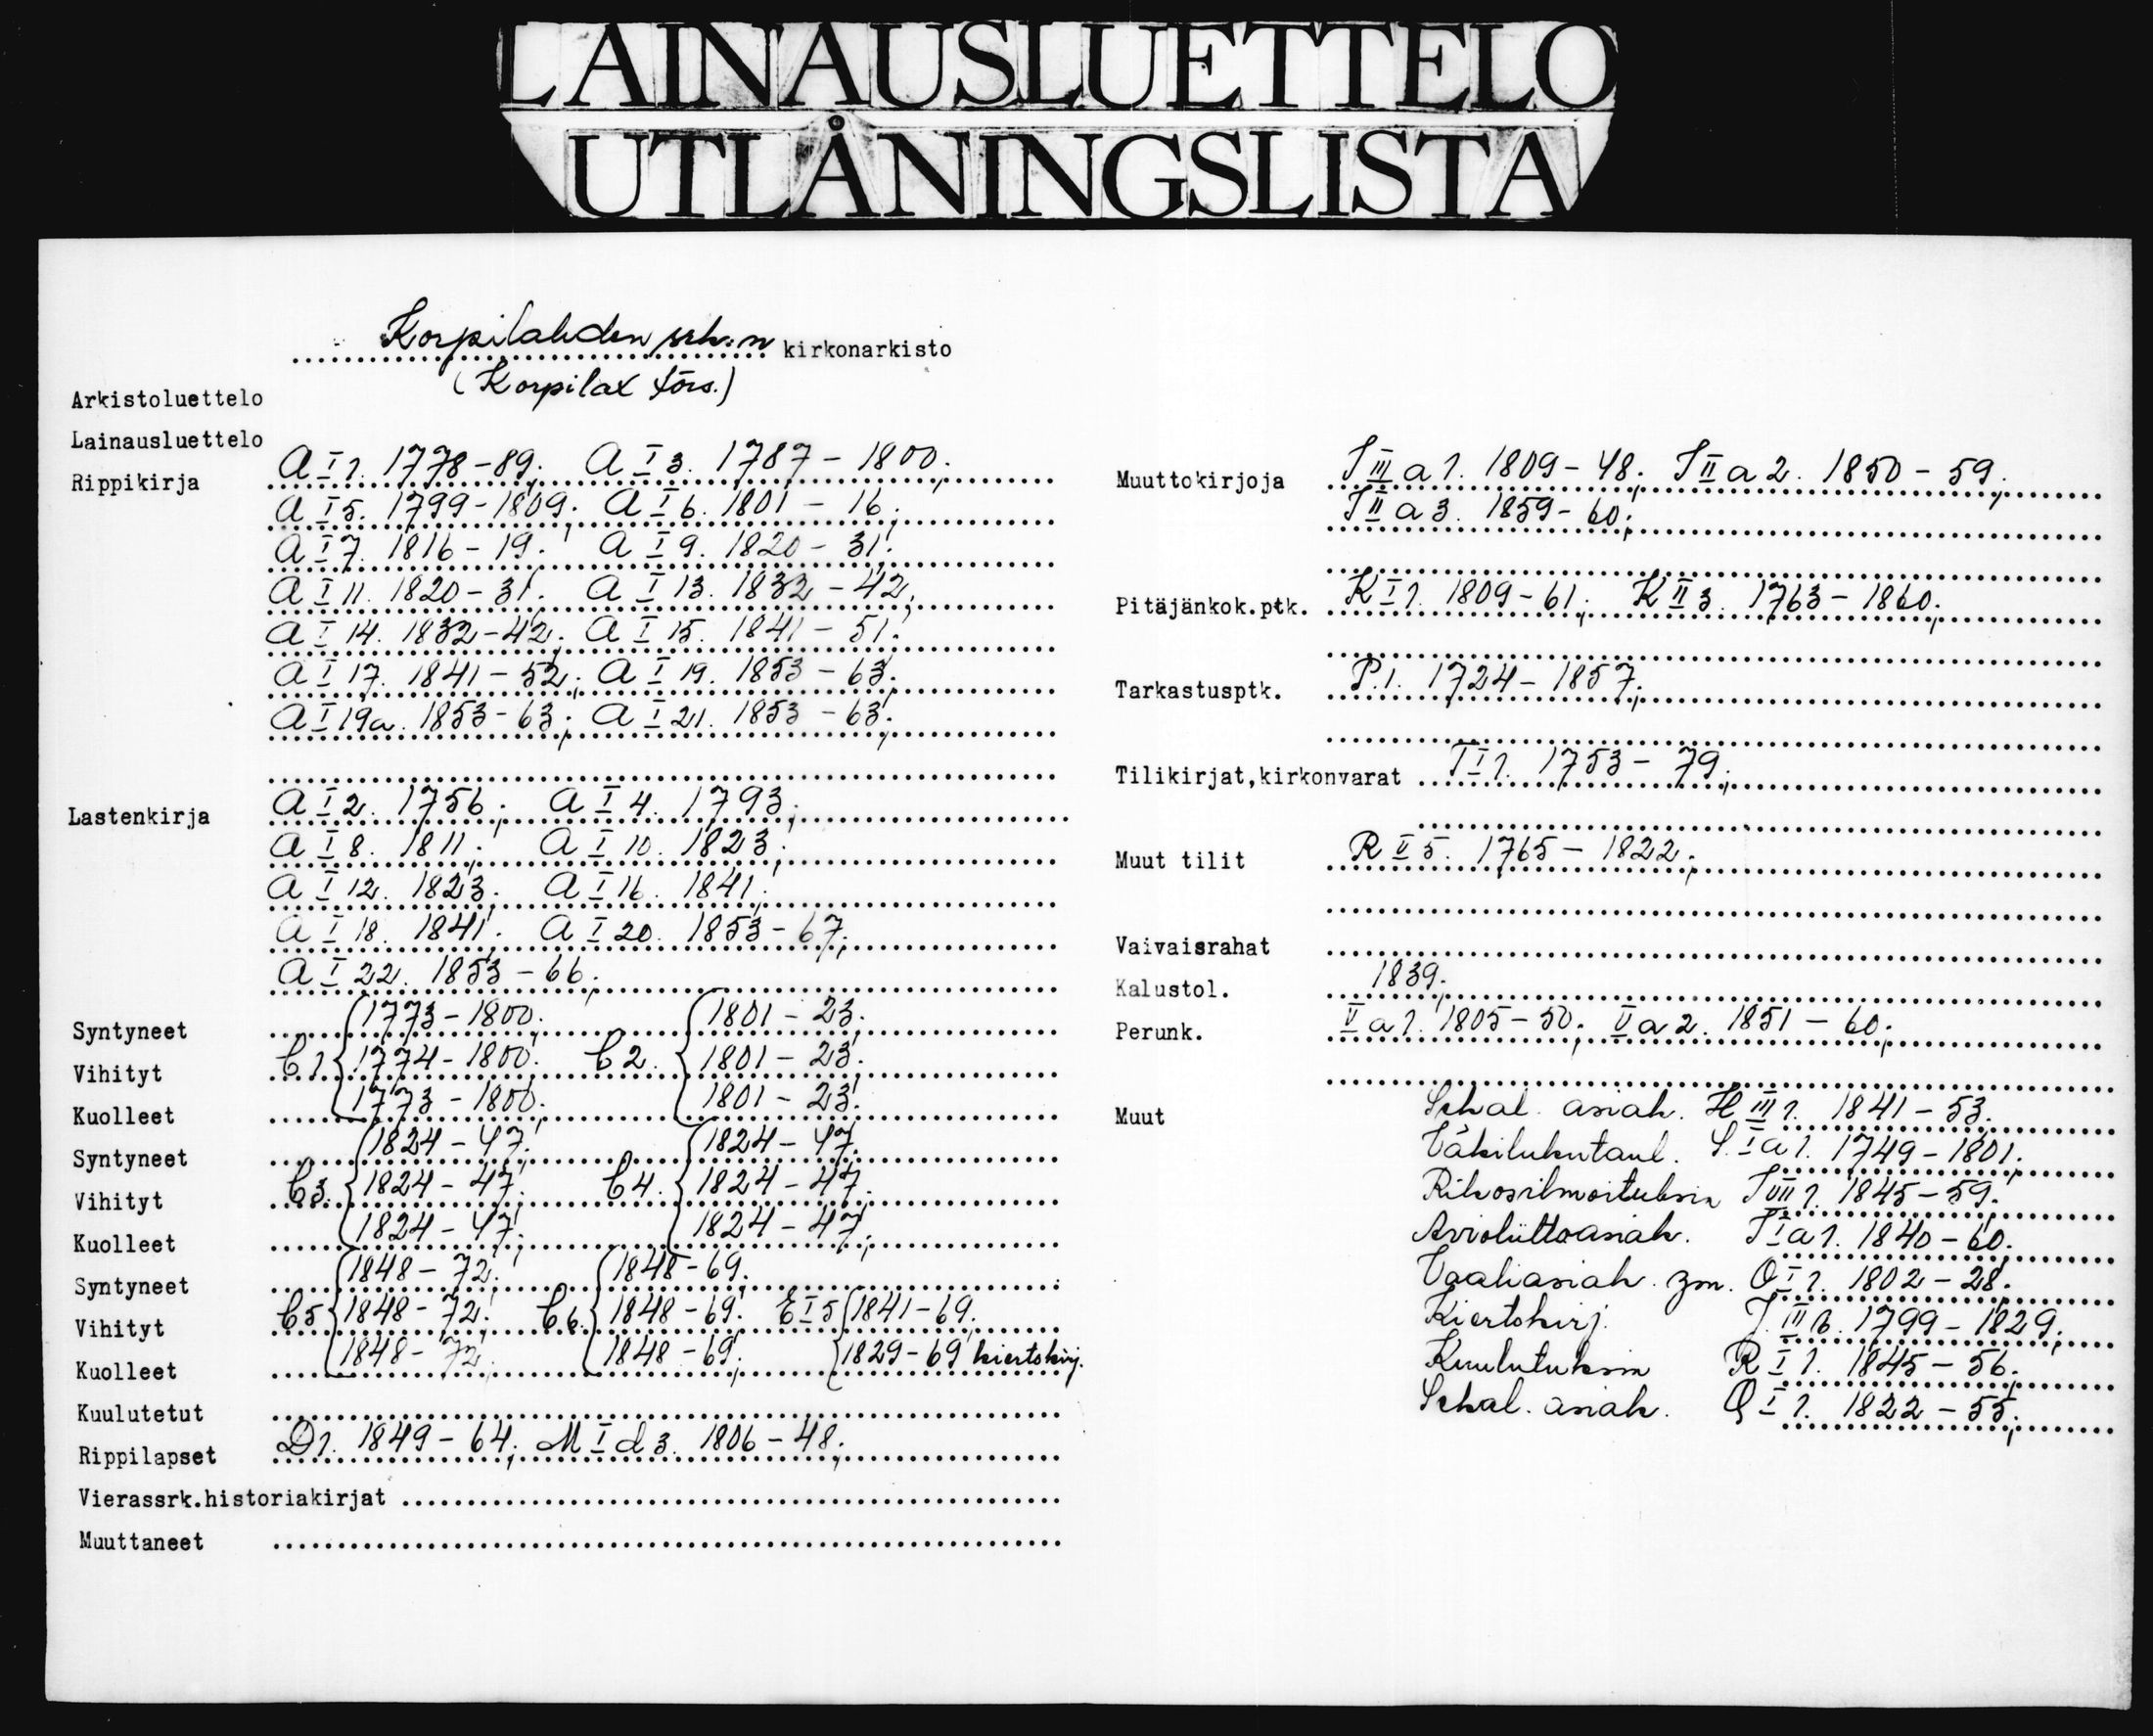 LAINAUSLUETTELO
UTLÅNINGSLISTA
Korpilahden srk:n kirkonarkisto
(Korpilaxförs.)
Arkistoluettelo
Lainausluettelo
Rippikirja A I 1. 1778-89; A I 3. 1787-1800;
A I 5. 1799-1809; A I 6. 1801-16;
A I 7. 1816-19; A I 9. 1820-31;
A I 11. 1820-31; A I 13. 1832-42;
A I 14. 1832-42; A I 15. 1841-51;
A I 17. 1841-52; A I 19. 1853-63;
A I 19a. 1853-63; A I 21. 1853-63;
Lastenkirja A I 2. 1756; A I 4. 1793;
A I 8. 1811; A I 10. 1823;
A I 12. 1823; A I 16. 1841;
A I 18. 1841; A I 20. 1853-67;
A I 22. 1853-66;
Syntyneet 1773-1800; 1801-23;
Vihityt C1. 1774-1800; C2. 1801-23;
Kuolleet 1773-1800; 1801-23;
Syntyneet 1824-47; 1824-47;
Vihityt C3. 1824-47; C4. 1824-47;
Kuolleet 1824-47; 1824-47;
Syntyneet 1848-72; 1848-69;
Vihityt C5 1848-72; C6. 1848-69; E I 5 1841-69.
Kuolleet 1848-72; 1848-69; 1829-69 kiertokirj.
Kuulutetut
Rippilapset D1. 1849-64; M I d 3. 1806-48;
Vierassrk.historiakirjat
Muuttaneet
Muuttokirjoja J III a 1. 1809-48; J II a 2. 1850-59;
J II a 3. 1859-60;
Pitäjänkok.ptk. K I 1. 1809-61; K II 3. 1763-1860;
Tarkastusptk. P.1. 1724-1857;
Tilikirjat,kirkonvarat T I 1. 1753-79;
Muut tilit R II 5. 1765-1822;
Vaivaisrahat
Kalustol. 1839;
Perunk. V a 1. 1805-50; V a 2. 1851-60;
Muut Sekal. asiak. H III 1. 1841-53;
Väkilukutaul. I a 1. 1749-1801;
Rikosilmoituksia J VII 1. 1845-59;
Avioliittoasiak. J I a 1. 1840-60;
Vaaliasiak. zm. O I 1. 1802-28;
Kiertokirj. J III b. 1799-1829;
Kuulutuksia R I 1. 1845-56;
Sekal. asiak. Q I 1. 1822-55;